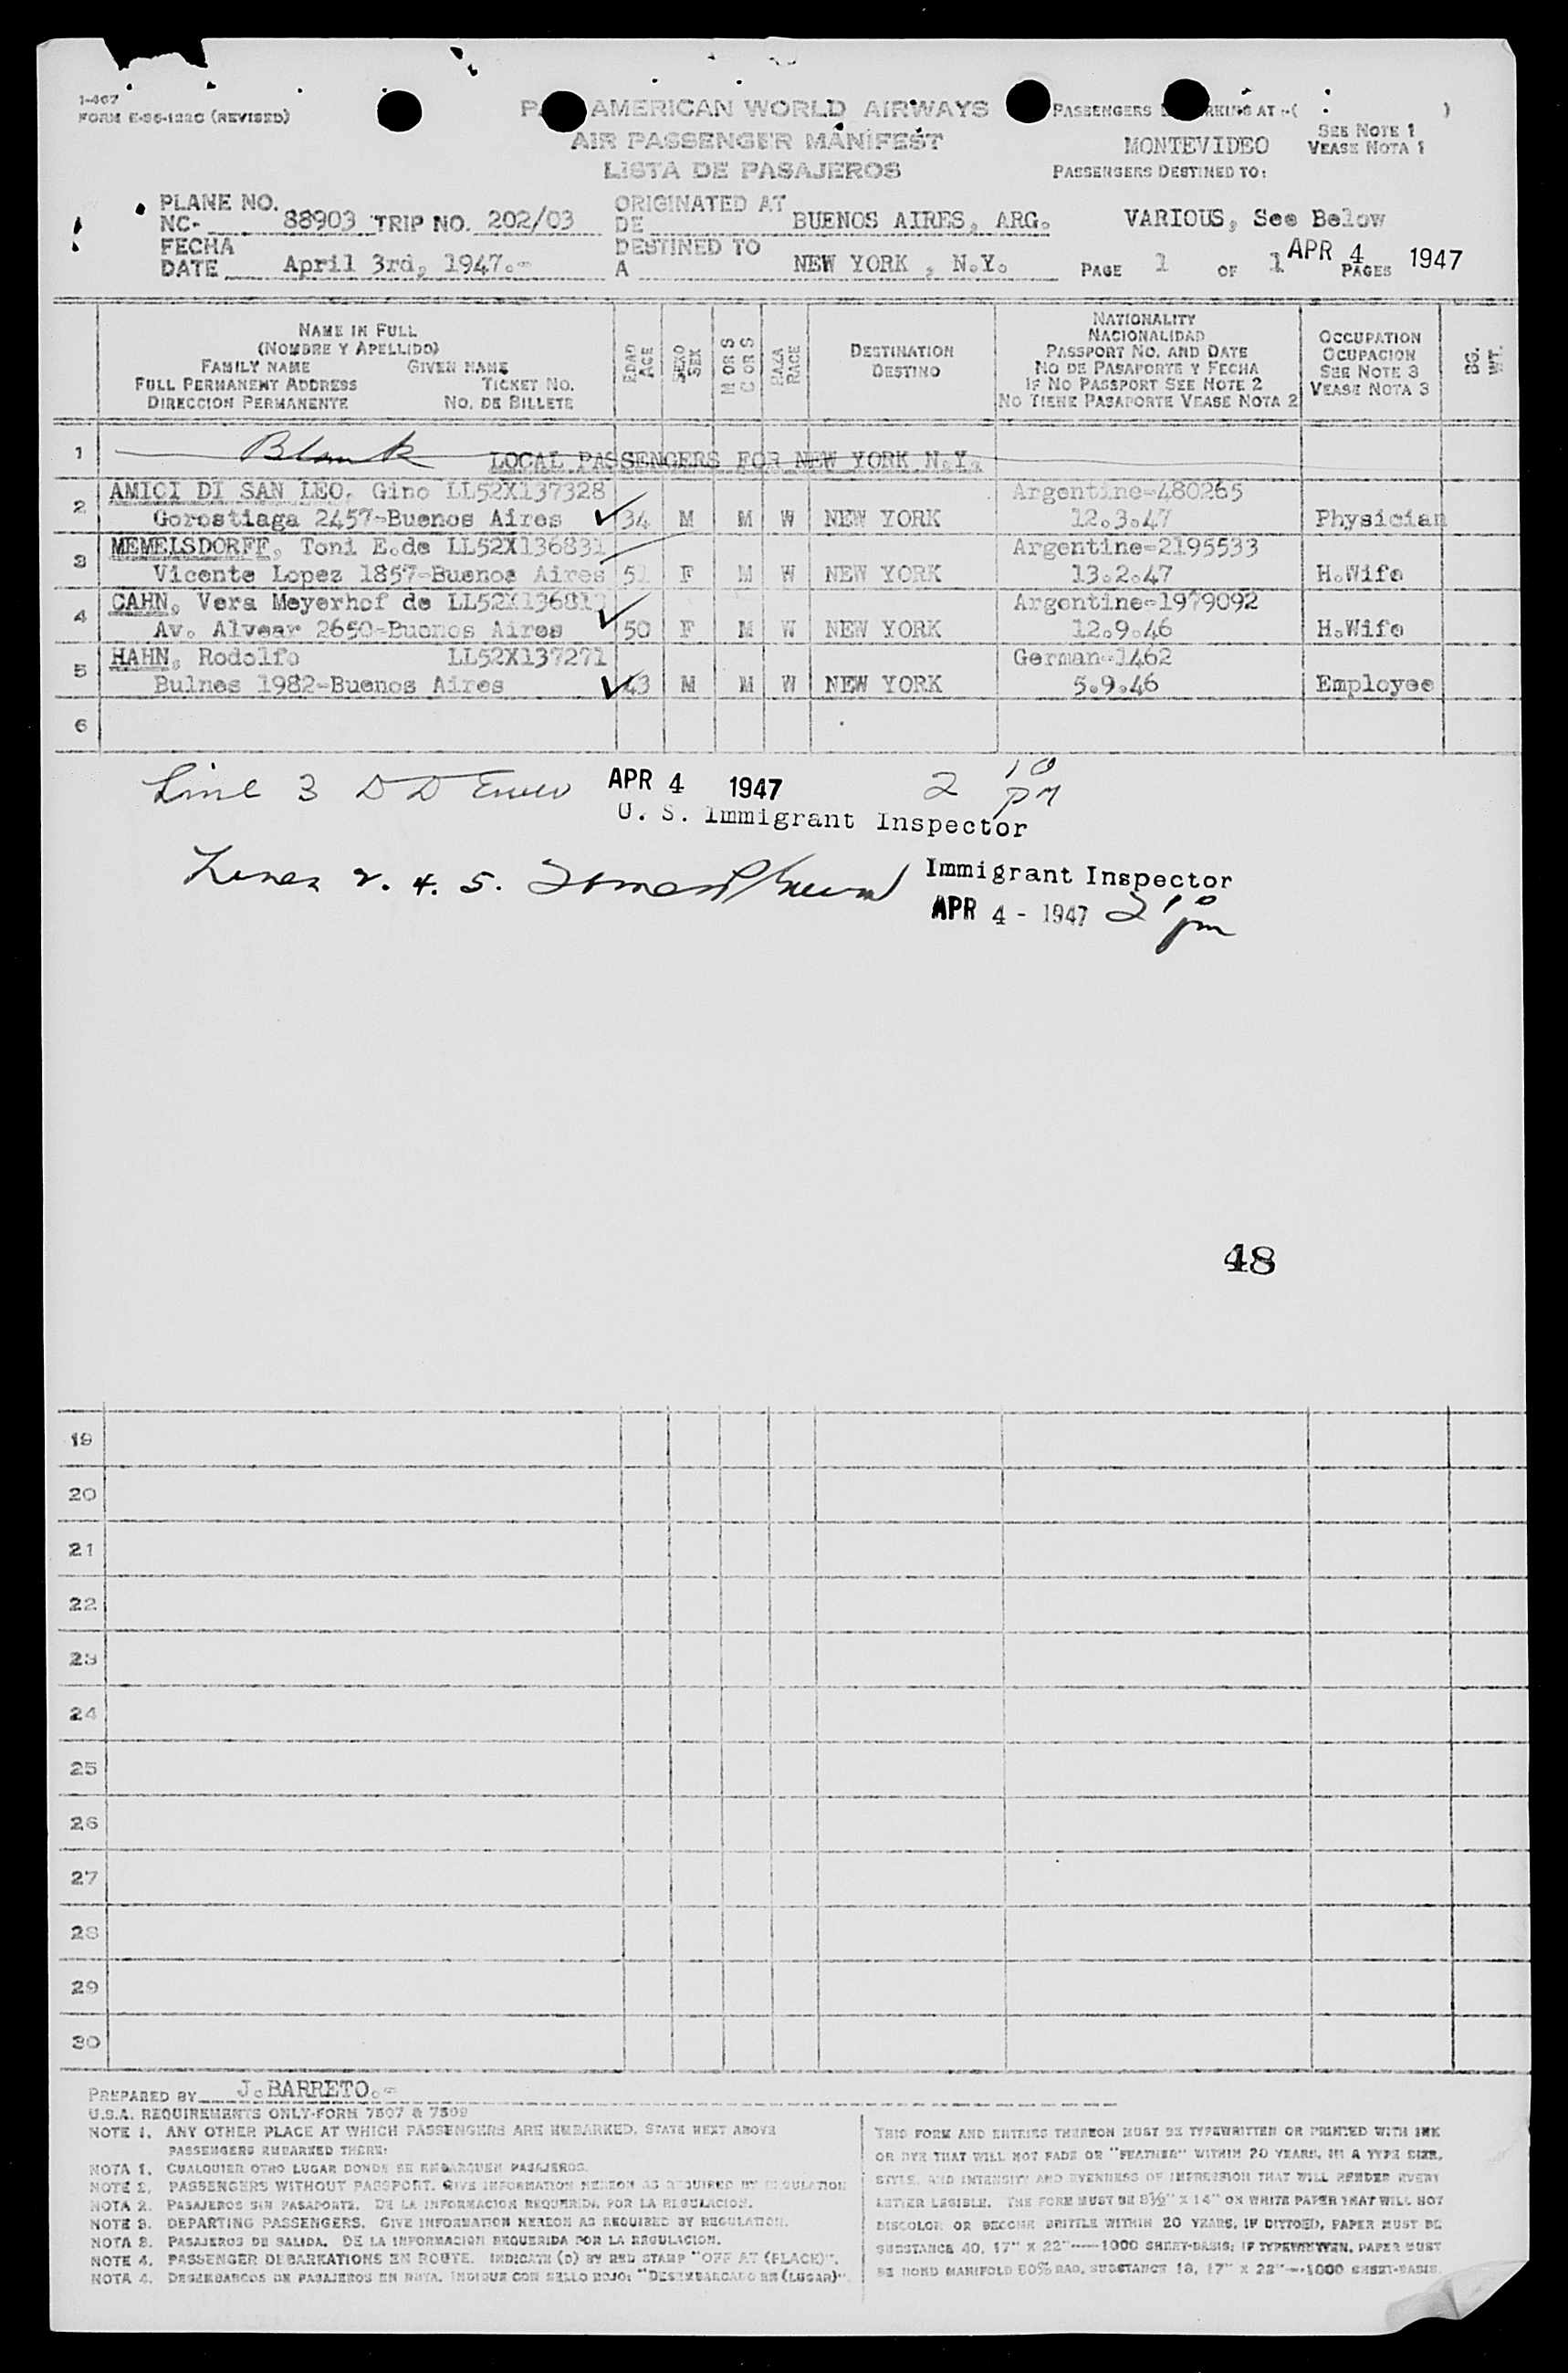 1-467
FORM E-96-122C (REVISED)
AMERICAN WORLD AIRWAYS
AIR PASSENGER MANIFEST
LISTA DE PASAJEROS
PASSENGERS AT -( )
MONTEVIDEO
SEE NOTE 1
VEASE NOTA 1
PASSENGERS DESTINED TO:
VARIOUS, See Below
PLANE NO.
NC- 88903 TRIP NO. 202/03
FECHA
DATE April 3rd, 1947.-
ORIGINATED AT
DE BUENOS AIRES, ARG.
DESTINED TO
A NEW YORK , N.Y.
PAGE 1 OF 1 PAGES
APR 4 1947
NAME IN FULL
(NOMBRE Y APELLIDO)
FAMILY NAME GIVEN NAME
FULL PERMANENT ADDRESS TICKET NO.
DIRECCION PERMANENTE NO. DE BILLETE
EDAD
AGE
SEXO
SEX
M OR S
C OR S
RAZA
RACE
DESTINATION
DESTINO
NATIONALITY
NACIONALIDAD
PASSPORT NO. AND DATE
NO DE PASAPORTE Y FECHA
IF NO PASSPORT SEE NOTE 2
NO TIENE PASAPORTE VEASE NOTA 2
OCCUPATION
OCUPACION
SEE NOTE 3
VEASE NOTA 3
BG.
WT.
1 Blank LOCAL PASSENGERS FOR NEW YORK N.Y.
2 AMICI DI SAN LEO, Gino LL52X137328 Argentine-480265
Gorostiaga 2457-Buenos Aires 34 M M W NEW YORK 12.3.47 Physician
3 MEMELSDORFF, Toni E.de LL52X136831 Argentine-2195533
Vicente Lopez 1857-Buenos Aires 51 F M W NEW YORK 13.2.47 H.Wife
4 CAHN, Vera Meyerhof de Argentine-1979092
Av. Alvear 2650-Buenos Aires 50 F M W NEW YORK 12.9.46 H.Wife
5 HAHN, Rodolfo LL52X137271 German-1462
Bulnes 1982-Buenos Aires 43 M M W NEW YORK 5.9.46 Employee
6
Line 3 D D APR 4 1947 2 10 pm
U. S. Immigrant Inspector
Lines 2. 4. 5. Immigrant Inspector
APR 4 - 1947 2 10 pm
48
19
20
21
22
23
24
25
26
27
28
29
30
PREPARED BY J.BARRETO.-
U.S.A. REQUIREMENTS ONLY-FORM 7507 & 7509
NOTE 1. ANY OTHER PLACE AT WHICH PASSENGERS ARE EMBARKED. STATE NEXT ABOVE
PASSENGERS EMBARKED THERE:
NOTA 1. CUALQUIER OTRO LUGAR DONDE SE EMBARQUEN PASAJEROS.
NOTE 2. PASSENGERS WITHOUT PASSPORT. GIVE INFORMATION HEREON AS REQUIRED BY REGULATION
NOTA 2. PASAJEROS SIN PASAPORTE. DE LA INFORMACION REQUERIDA POR LA REGULACION.
NOTE 3. DEPARTING PASSENGERS. GIVE INFORMATION HEREON AS REQUIRED BY REGULATION.
NOTA 3. PASAJEROS DE SALIDA. DE LA INFORMACION REQUERIDA POR LA REGULACION.
NOTE 4. PASSENGER DEBARKATIONS EN ROUTE. INDICATE (D) BY RED STAMP "OFF AT (PLACE)".
NOTA 4. DESEMBARCOS DE PASAJEROS EN RUTA. INDIQUE CON SELLO ROJO: "DESEMBARCADO EN (LUGAR)".
THIS FORM AND ENTRIES THEREON MUST BE TYPEWRITTEN OR PRINTED WITH INK
OR DYE THAT WILL NOT FADE OR "FEATHER" WITHIN 20 YEARS, IN A TYPE SIZE,
STYLE, AND INTENSITY AND EVENNESS OF IMPRESSION THAT WILL RENDER EVERY
LETTER LEGIBLE. THE FORM MUST BE 8½" X 14" ON WHITE PAPER THAT WILL NOT
DISCOLOR OR BECOME BRITTLE WITHIN 20 YEARS, IF DITTOED, PAPER MUST BE
SUBSTANCE 40, 17" X 22"----1000 SHEET-BASIS; IF TYPEWRITTEN, PAPER MUST
BE BOND MANIFOLD 50% RAG, SUBSTANCE 18, 17" X 22"---1000 SHEET-BASIS.